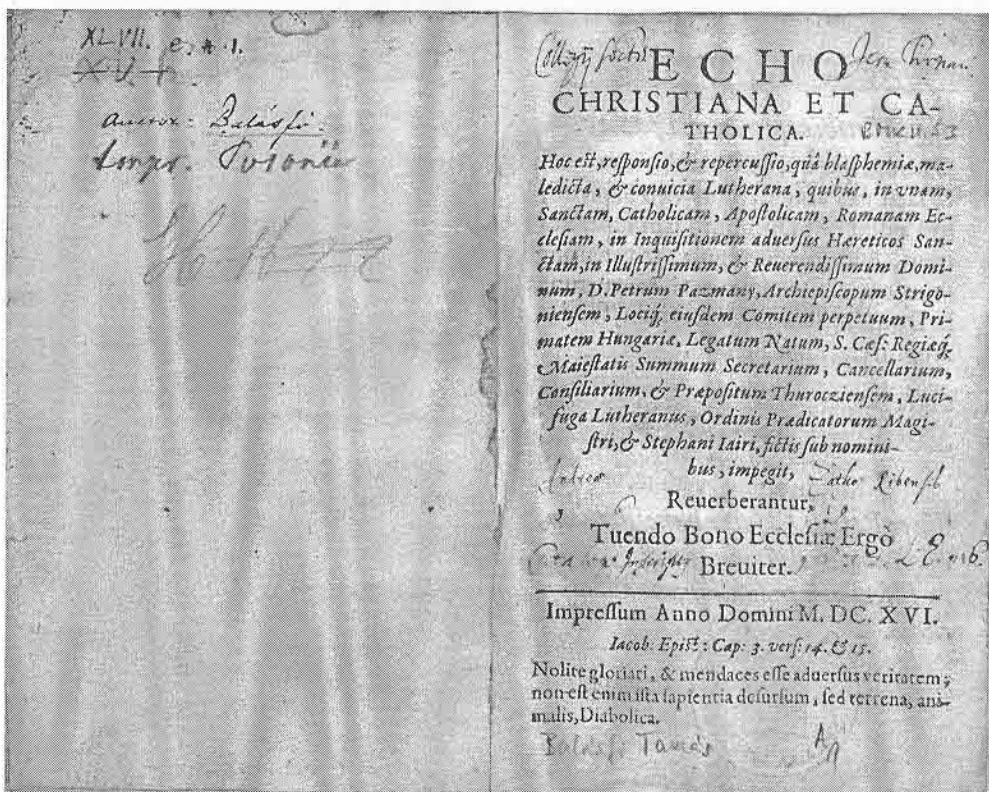 XLVII. e. # 1.
XV
Auctor: Balásfi.
impr. Posonii
Collegij Societ
ECHO
CHRISTIANA ET CA-
THOLICA.
Hoc est, responsio, & repercussio, quâ blasphemiæ, ma-
ledicta, & conuicia Lutherana, quibus, in vnam,
Sanctam, Catholicam, Apostolicam, Romanam Ec-
clesiam, in Inquisitionem aduersus Hæreticos San-
ctam, in Illustrissimum, & Reuerendissimum Domi-
num, D. Petrum Pazmany, Archiepiscopum Strigo-
niensem, Lociq́; eiusdem Comitem perpetuum, Pri-
matem Hungariæ, Legatum Natum, S. Cæs: Regiæq́;
Maiestatis Summum Secretarium, Cancellarium,
Consiliarium, & Præpositum Thurocziensem, Luci-
fuga Lutheranus, Ordinis Prædicatorum Magi-
stri, & Stephani Iairi, fictis sub nomini-
bus, impegit,
Reuerberantur,
Tuendo Bono Ecclesiæ Ergò
Breuiter.
Impressum Anno Domini M. DC. XVI.
Iacob: Epist: Cap: 3. vers: 14. & 15.
Nolite gloriari, & mendaces esse aduersus veritatem;
non est enim ista sapientia desursum, sed terrena, ani-
malis, Diabolica.
Balásfi Tamás